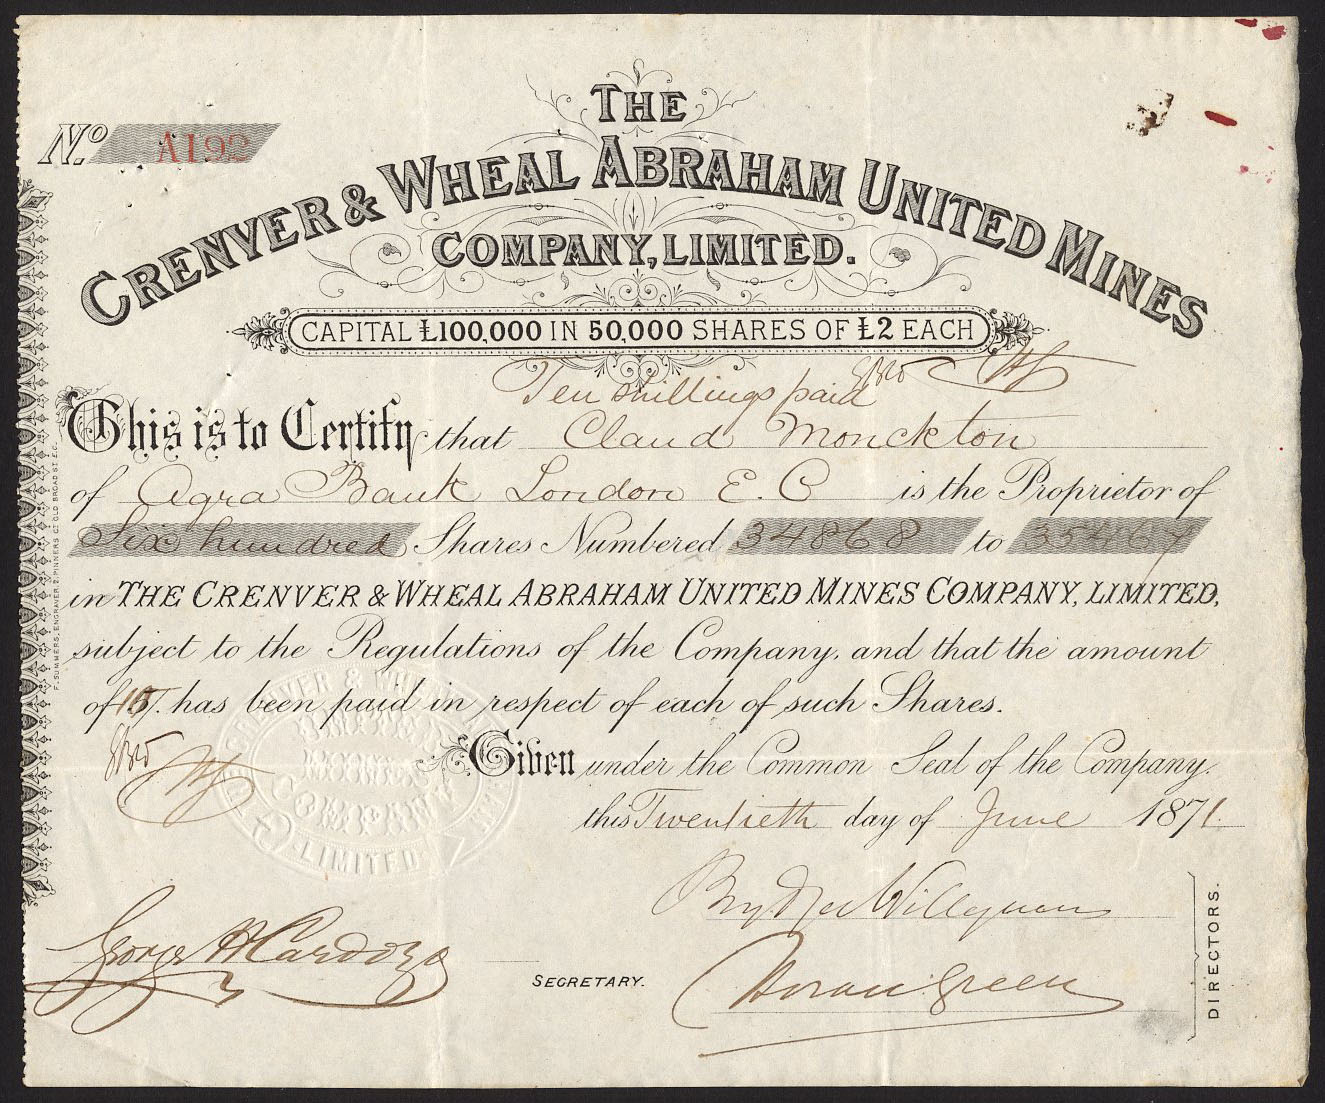 No. A192
THE
CRENVER & WHEAL ABRAHAM UNITED MINES
COMPANY, LIMITED.
CAPITAL £100,000 IN 50,000 SHARES OF £2 EACH
Ten shillings paid
This is to Certify that Claud Monckton
of Agra Bank London E. C is the Proprietor of
Six hundred Shares Numbered 34868 to 35467
in THE CRENVER & WHEAL ABRAHAM UNITED MINES COMPANY, LIMITED,
subject to the Regulations of the Company, and that the amount
of has been paid in respect of each of such Shares.
Given under the Common Seal of the Company.
this Twentieth day of June 1871.
George H Cardozo
SECRETARY.
Horan Green
DIRECTORS.
F. SUMMERS, ENGRAVER, 2, PINNERS CT OLD BROAD ST. E.C.
CRENVER & WHEAL
UNITED
MINES
COMPANY
LIMITED